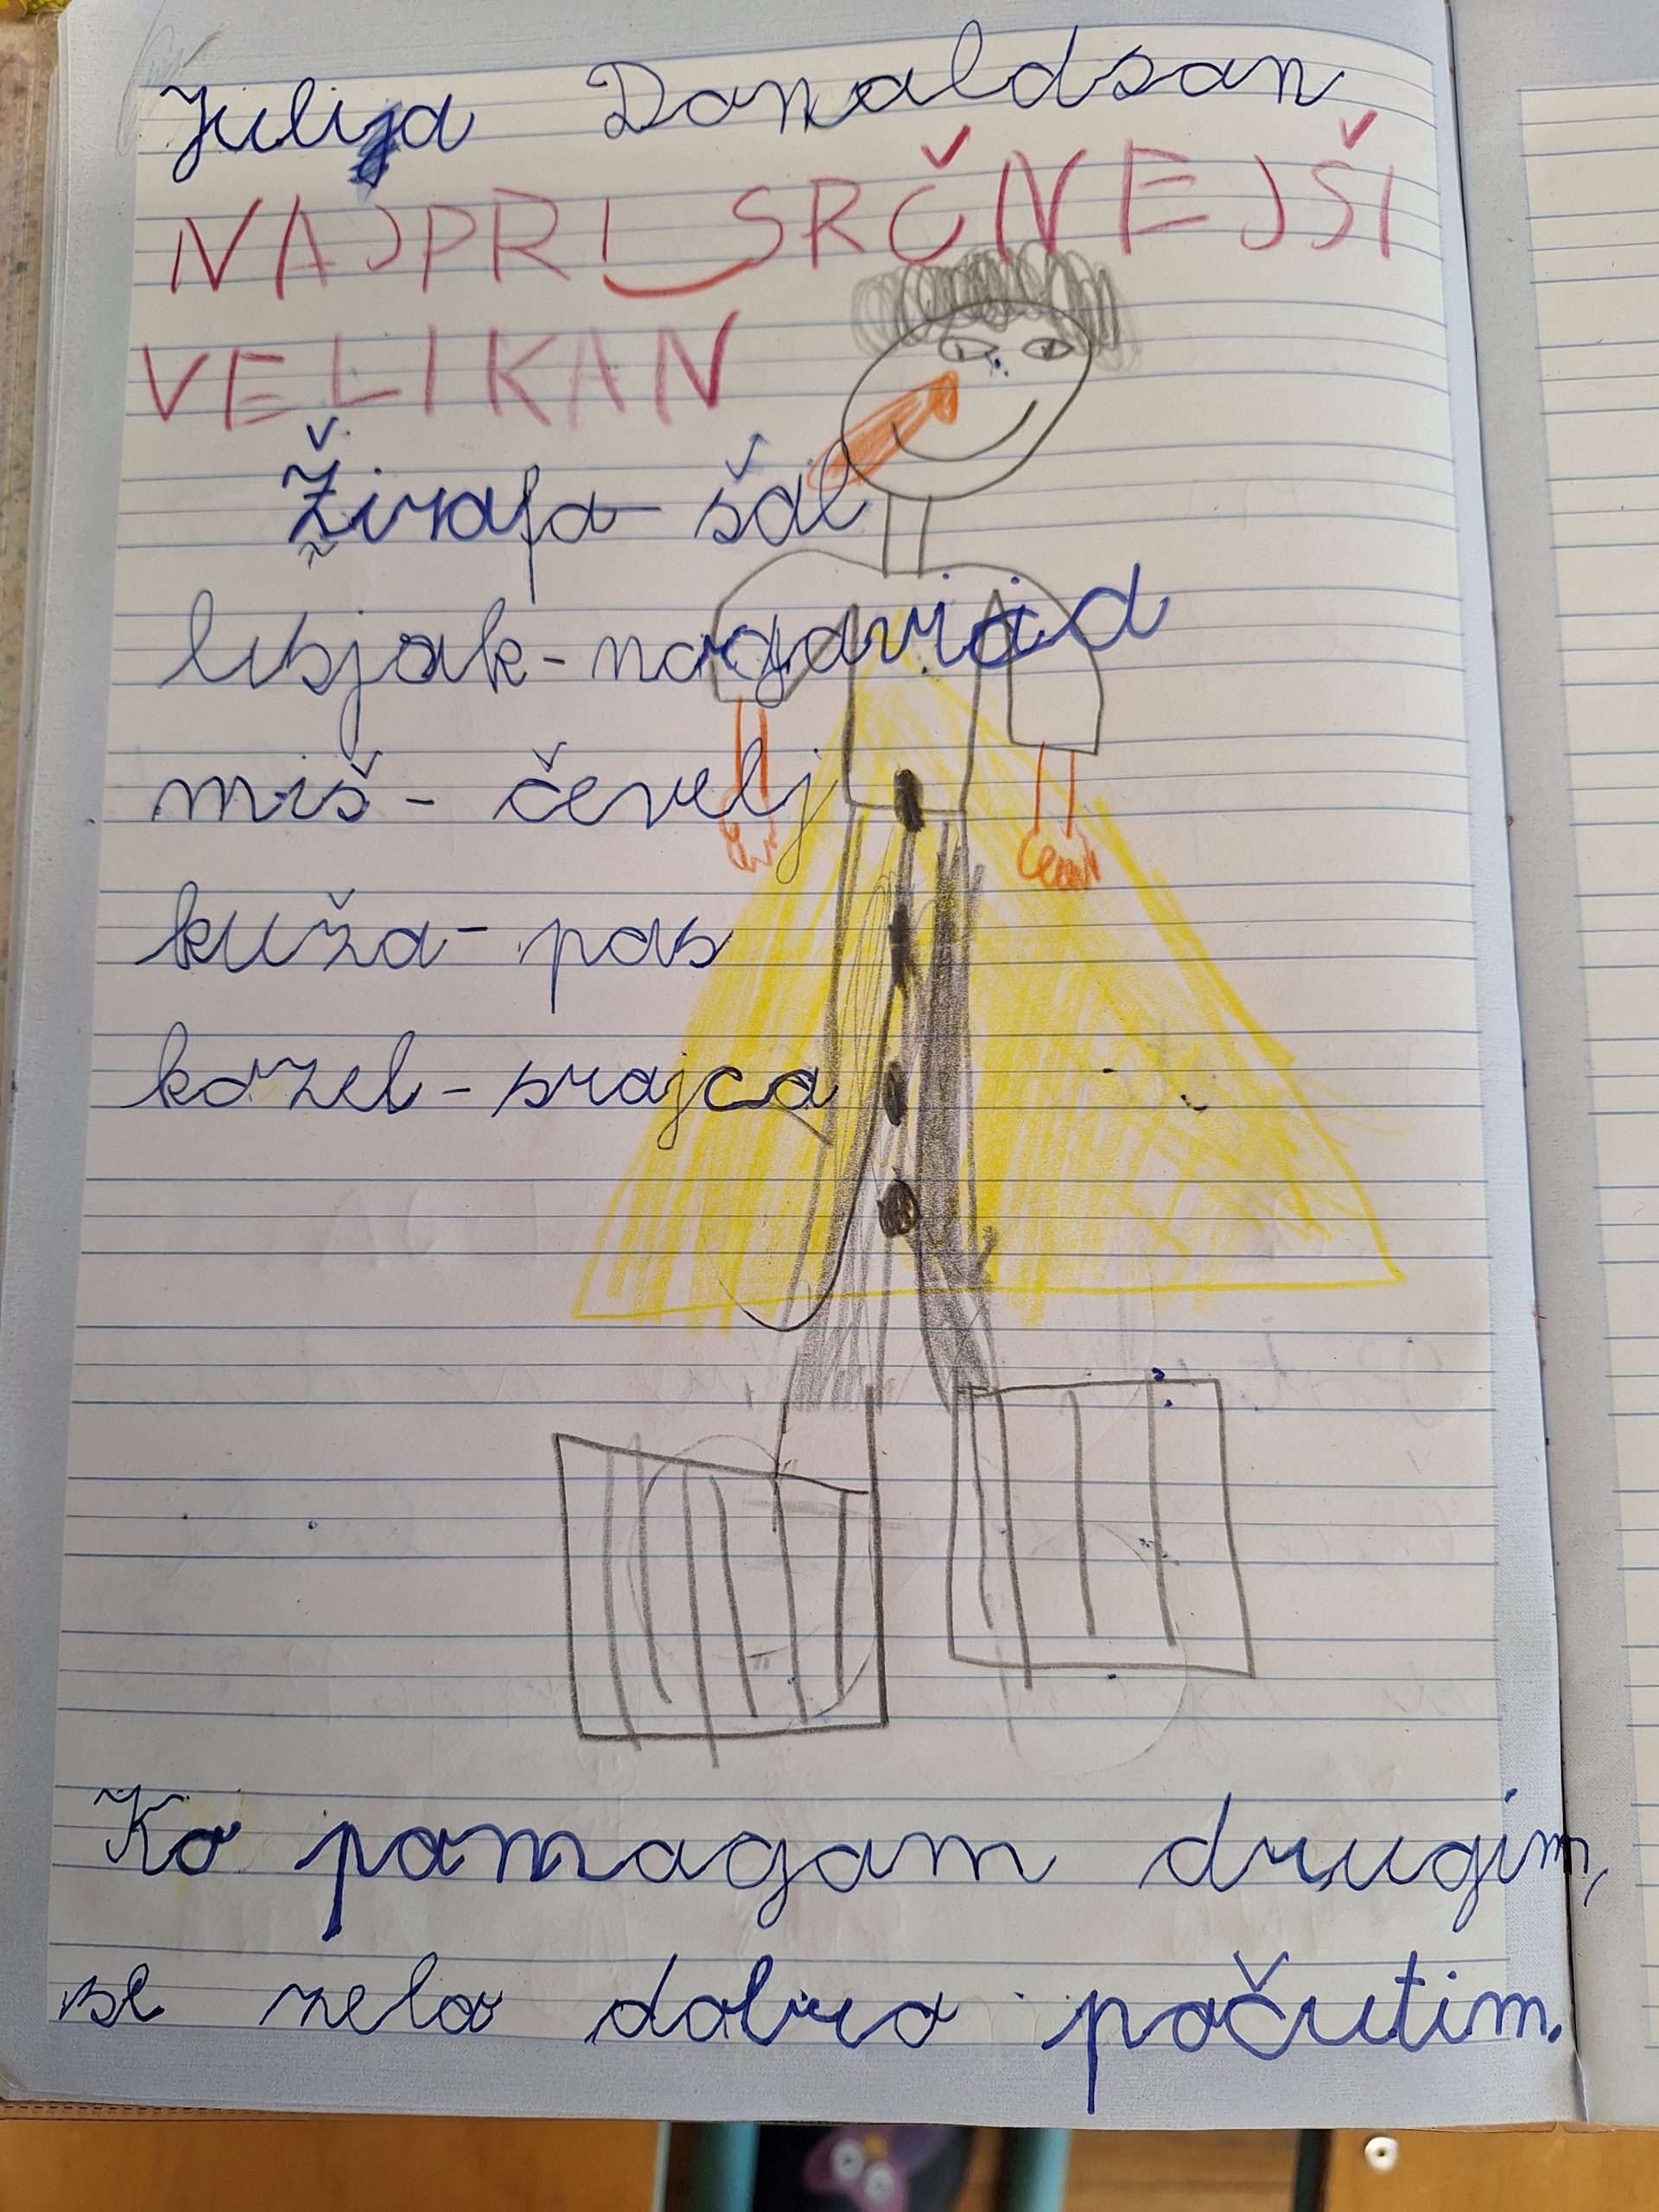 Julija Donaldson
NAJPRISRČNEJŠI
VELIKAN
Žirafa - šal
lisjak - nogavica
miš - čevelj
kuža - pas
kozel - srajca
Ko pomagam drugim,
se zelo dobro počutim.